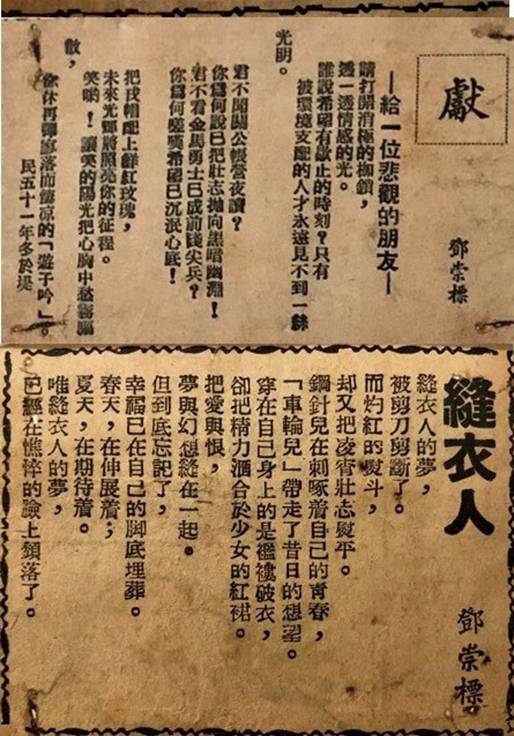 獻
鄧崇標
—給一位悲觀的朋友—
請打開消極的枷鎖,
透一透情感的光。
誰說希望有歇止的時刻?只有
被環境支配的人才永遠見不到一絲
光明。
君不聞關公帳營夜讀?
你爲何說已把壯志拋向黑暗幽淵!
君不看金馬勇士已成前踐尖兵?
你爲何嗟嘆希望已沉泯心底!
把戎帽配上鮮紅玫瑰,
未來光輝將照亮你的征程。
笑喲!讓笑的陽光把心胸中愁霧驅
散,
你休再彈寥落而悽凉的「遊子吟」。
民五十一年冬於堤
縫衣人
鄧崇標
縫衣人的夢,
被剪刀剪斷了。
而灼紅的熨斗,
却又把凌霄壯志熨平。
鋼針兒在刺啄着自己的靑春,
「車輪兒」帶走了昔日的想望。
穿在自己身上的是襤褸破衣,
卻把精力滙合於少女的紅裙。
把愛與恨,
夢與幻想縫在一起。
但到底忘記了,
幸福已在自己的脚底埋葬。
春天,在伸展着;
夏天,在期待着。
唯縫衣人的夢,
已經在憔悴的臉上頹落了。